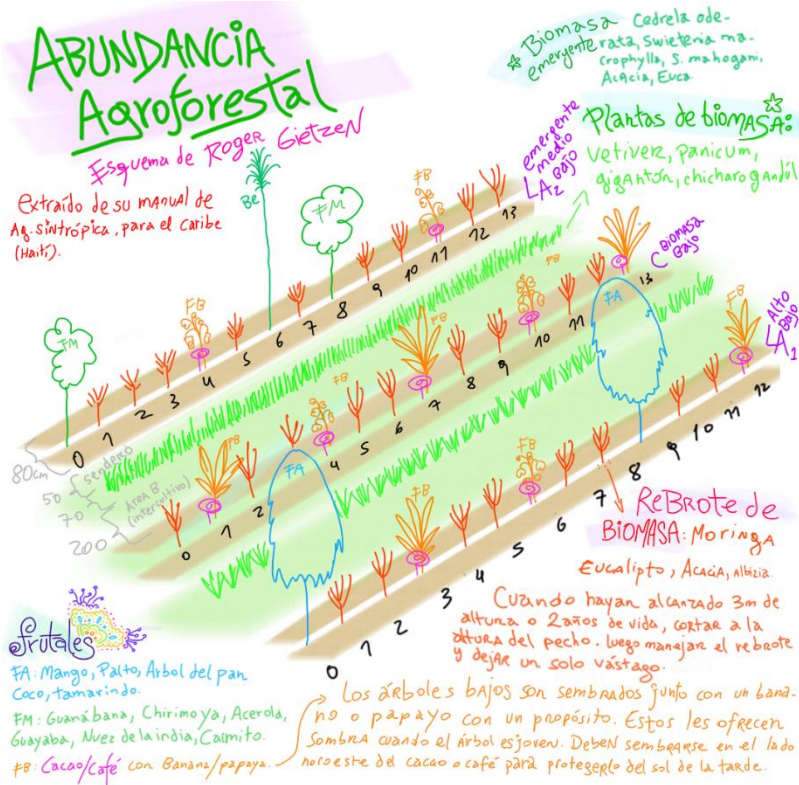 ABUNDANCIA
Agroforestal
Esquema de Roger Gietzen
Extraído de su manual de
Ag. sintrópica, para el Caribe
(Haití).
☆ Biomasa emergente
Cedrela ode-
rata, Swietenia ma-
crophylla, S. mahogani,
Acacia, Euca.
Plantas de biomasa:
Vetiver, panicum,
gigantón, chicharo gandúl
emergente
medio
bajo
LA2
Biomasa
Bajo
C
Alto
Bajo
LA1
FM
FB
Be
FM
FB
0 1 2 3 4 5 6 7 8 9 10 11 12 13
FB
FB
FB
FB
FB
FA
FA
0 1 2 4 5 6 7 8 9 10 11 13
FB
FB
FB
0 1 2 3 4 5 6 7 8 9 10 11 12
80cm
50
sendero
70
Area B
(intercultivo)
200
ReBrote de
BIOMASA: Moringa
Eucalipto, Acacia, Albizia
Cuando hayan alcanzado 3m de
altura o 2 años de vida, cortar a la
altura del pecho. luego manejar el rebrote
y dejar un solo vástago.
frutales
FA: Mango, Palto, Arbol del pan
Coco, tamarindo.
FM: Guanábana, Chirimoya, Acerola,
Guayaba, Nuez de la india, Caimito.
FB: Cacao/café con Banana/papaya.
Los árboles bajos son sembrados junto con un bana-
no o papayo con un propósito. Estos les ofrecen
sombra cuando el árbol es joven. Deben sembrarse en el lado
noroeste del cacao o café para protegerlo del sol de la tarde.